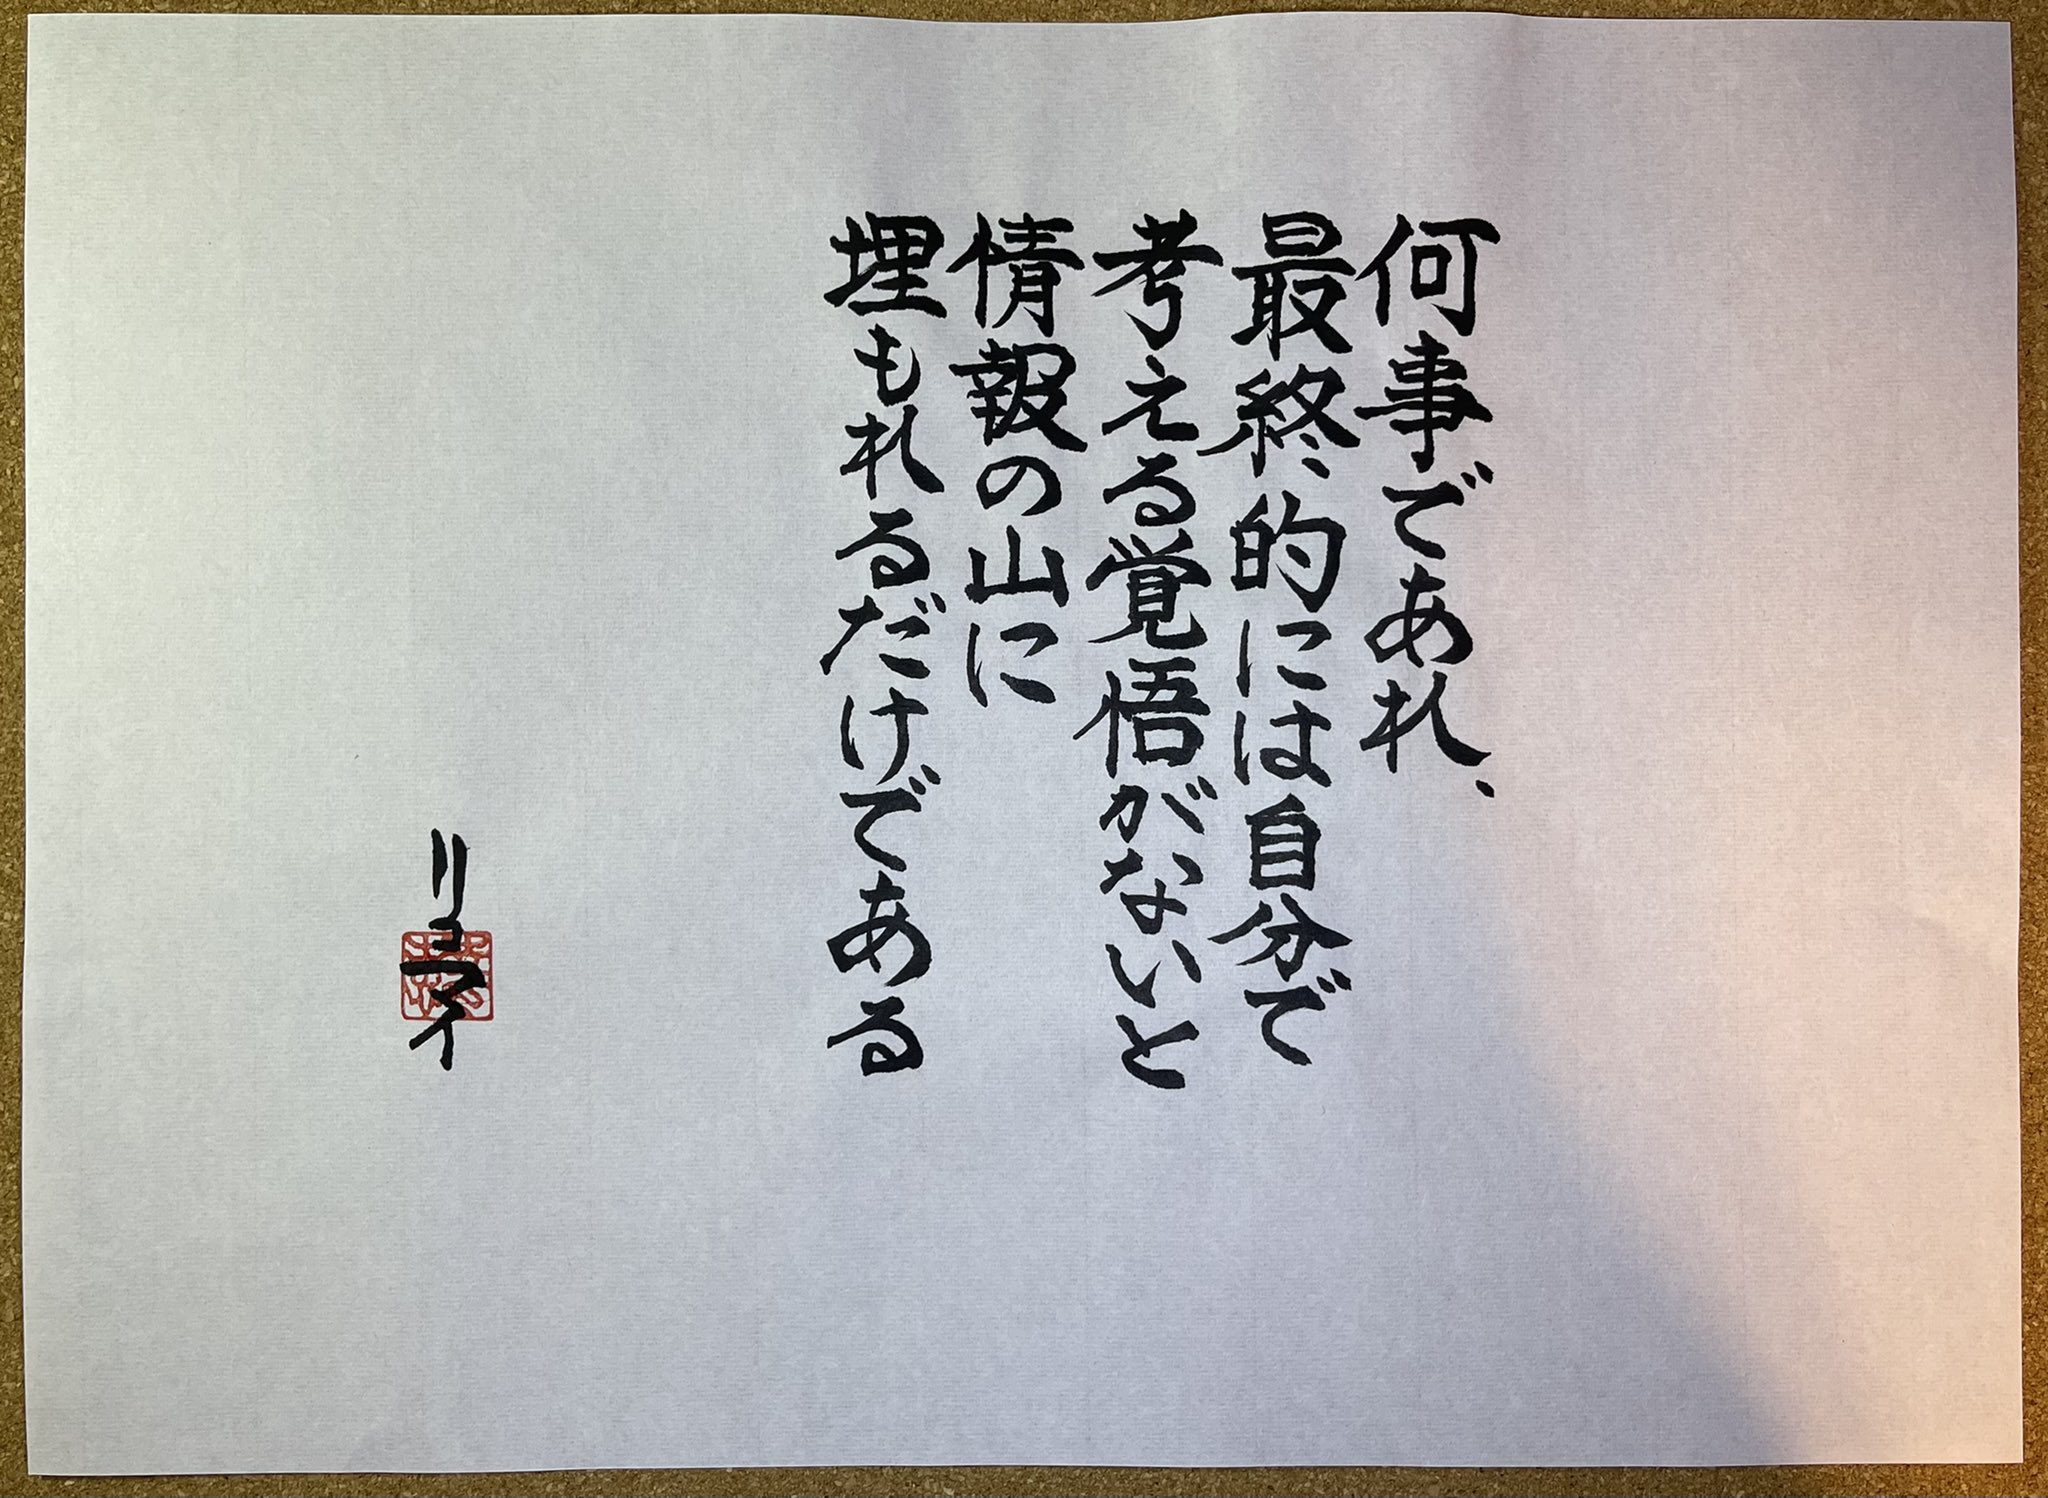 何事であれ、
最終的には自分で
考える覚悟がないと
情報の山に
埋もれるだけである
リョーマイ